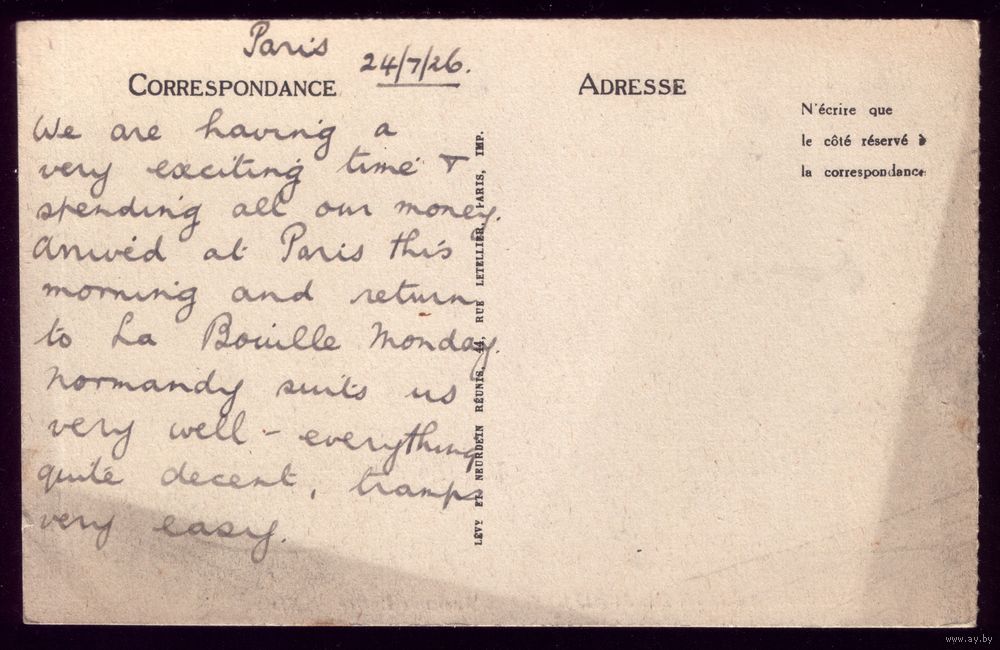 Paris
24/7/26.
CORRESPONDANCE
We are having a
very exciting time &
spending all our money.
Arrived at Paris this
morning and return
to La Bouille Monday.
Normandy suits us
very well - everything
quite decent, tramps
very easy.
LÉVY ET NEURDEIN RÉUNIS, 44, RUE LETELLIER, PARIS, IMP.
ADRESSE
N'écrire que
le côté réservé à
la correspondance
www.ay.by